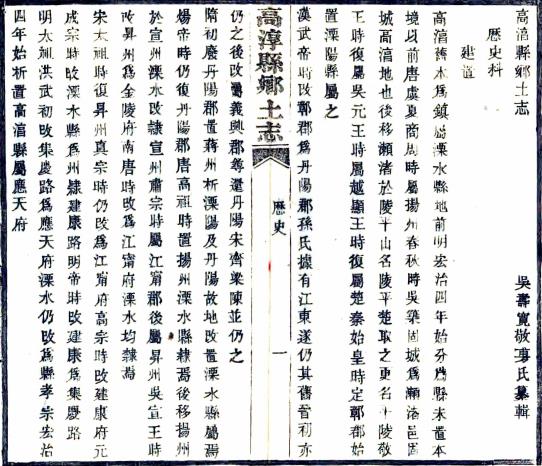 高淳縣鄉土志
吳壽寬敬夏氏纂輯
歷史科
建置
高淳舊本爲鎭屬溧水縣地前明宏治四年始分爲縣未置本
境以前唐虞夏商周時屬揚州春秋時吳築固城爲瀨渚邑固
城高淳地也後移瀨渚於陵平山名陵平楚取之更名平陵敬
王時復屬吳元王時屬越顯王時復屬楚秦始皇時定鄣郡始
置溧陽縣屬之
漢武帝時改鄣郡爲丹陽郡孫氏據有江東遂仍其舊晉初亦
高淳縣鄉土志
歷史
一
仍之後改屬義興郡尋還丹陽宋齊梁陳並仍之
隋初廢丹陽郡置蔣州析溧陽及丹陽故地改置溧水縣屬焉
煬帝時仍復丹陽郡唐高祖時置揚州溧水縣隸焉後移揚州
於宣州溧水改隸宣州肅宗時屬江甯郡後屬昇州吳宣王時
改昇州爲金陵府南唐時改爲江甯府溧水均隸焉
宋太祖時復昇州眞宗時仍改爲江甯府高宗時改建康府元
成宗時改溧水縣爲州隸建康路明帝時改建康爲集慶路
明太祖洪武初改集慶路爲應天府溧水仍改爲縣孝宗宏治
四年始析置高淳縣屬應天府